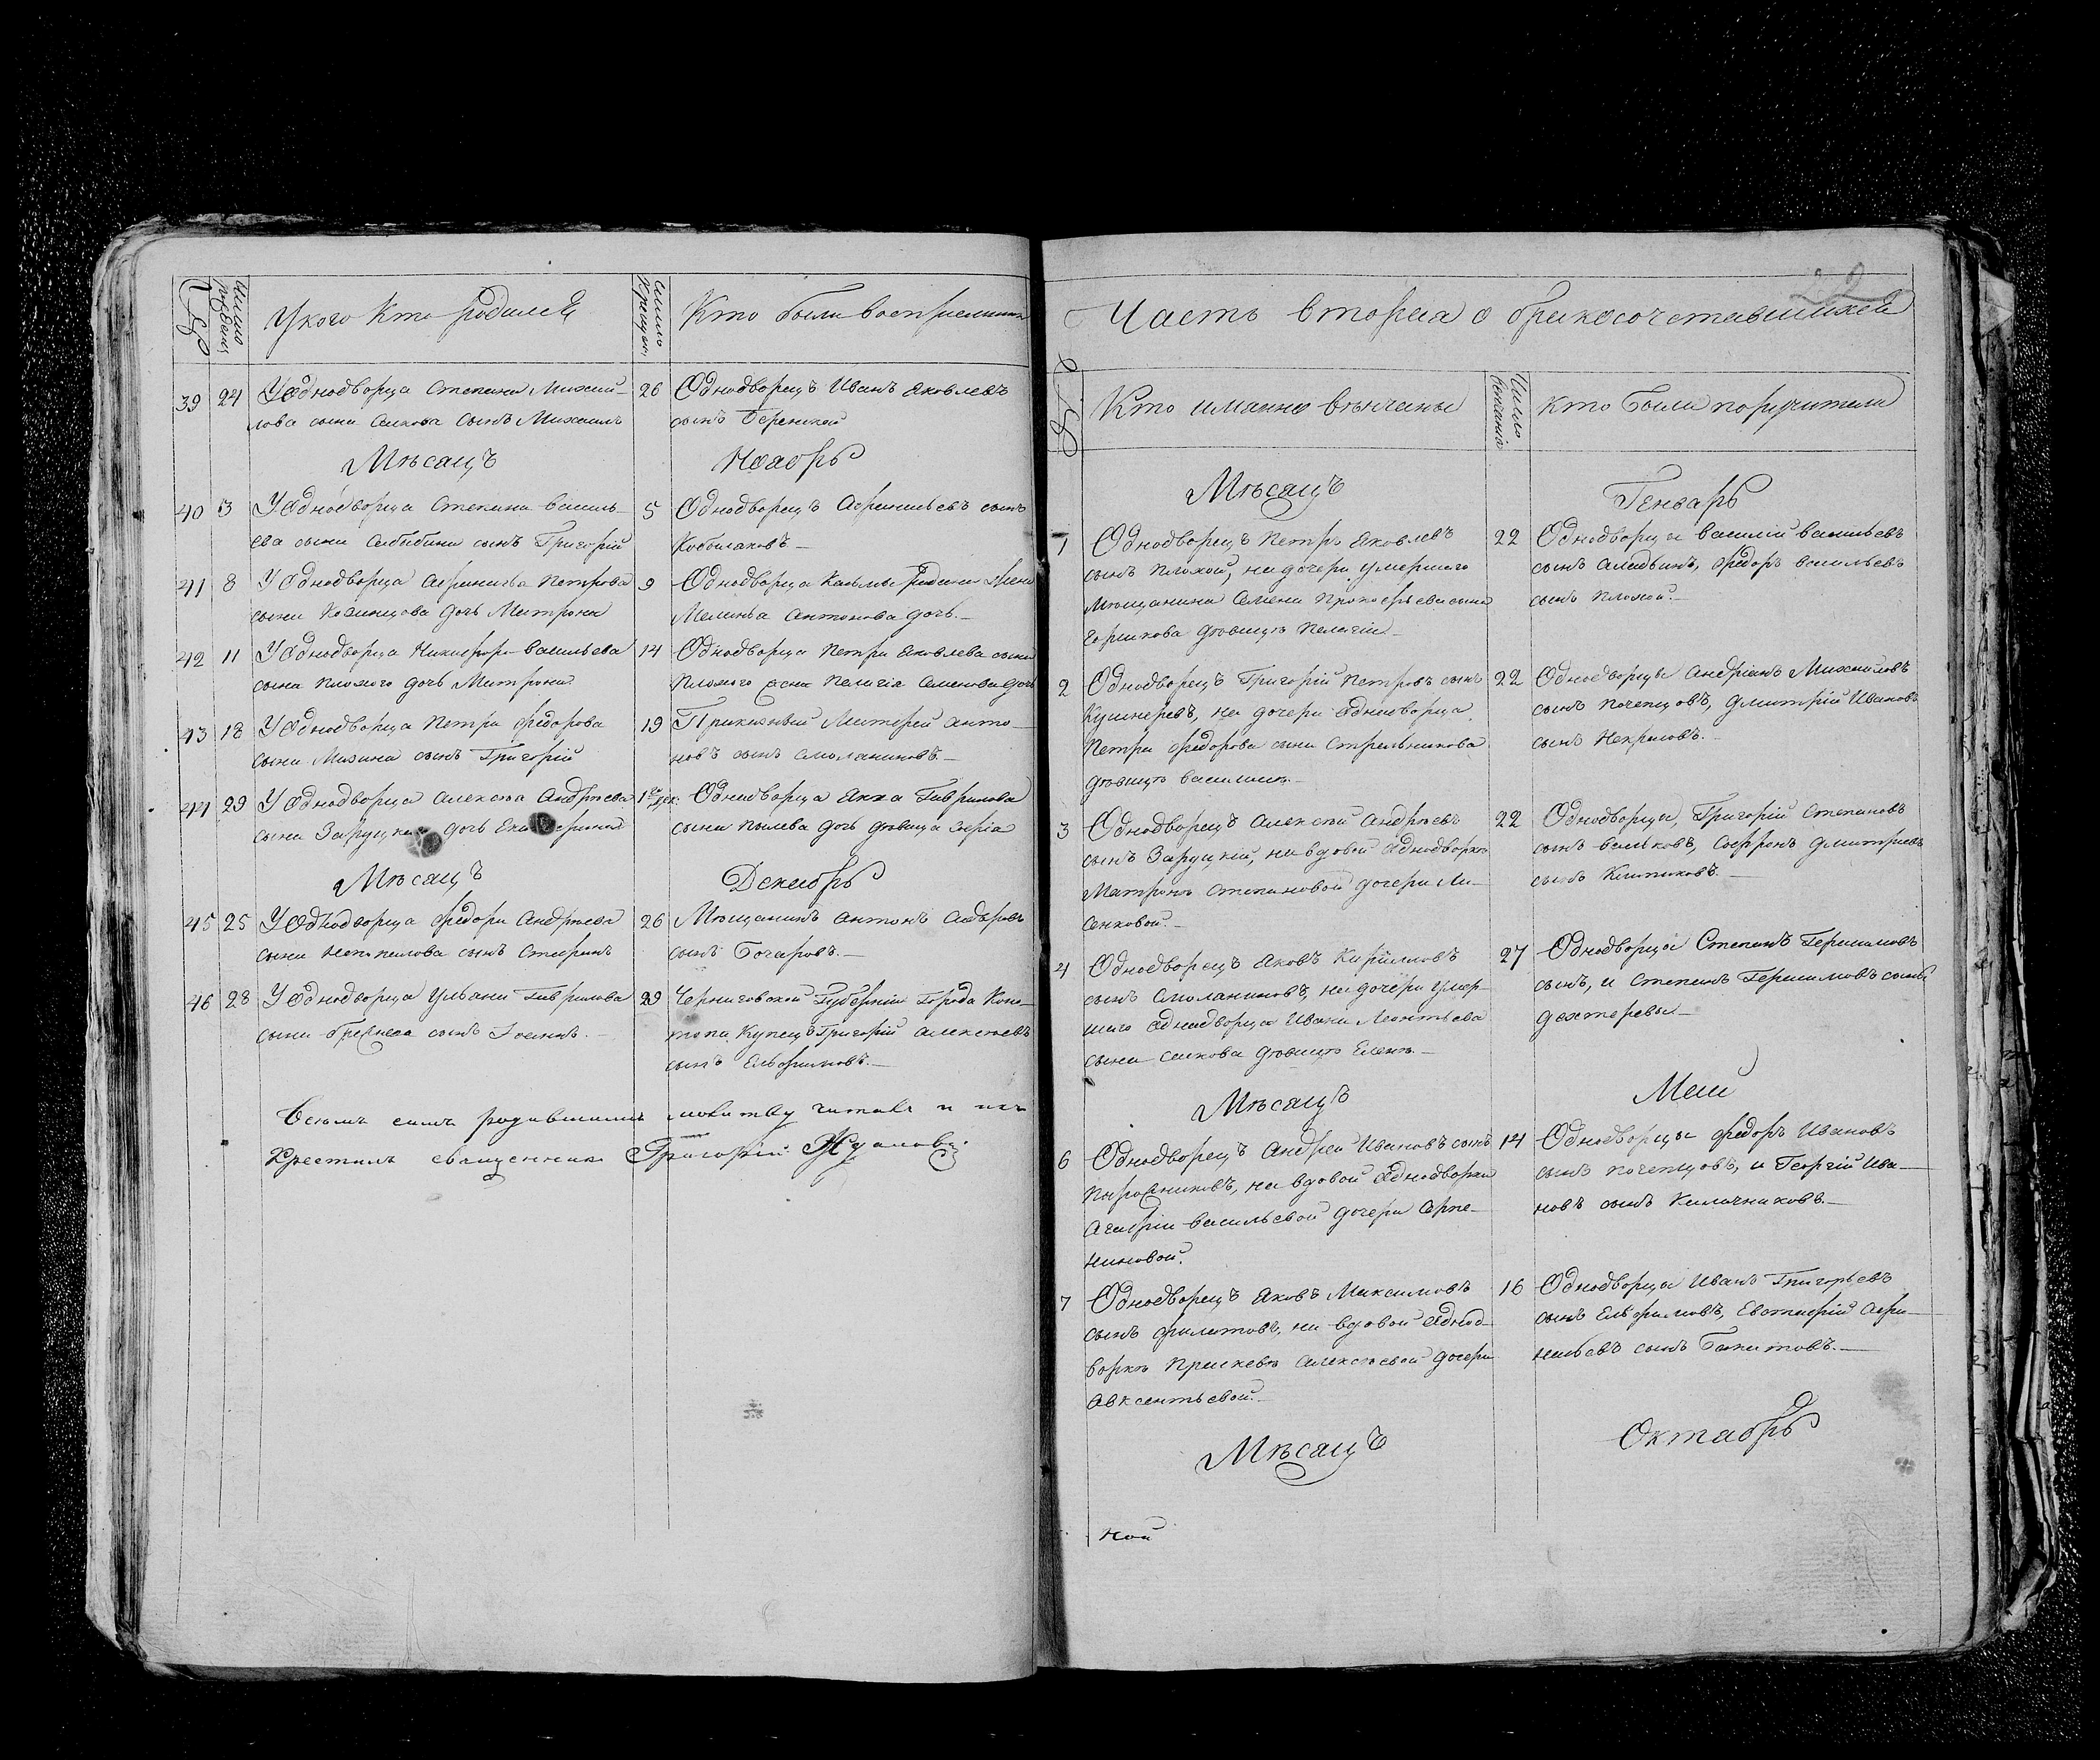 №
Число рожденія
У кого кто родился
Число крещен.
Кто были восприемники
39 24 У Однодворца Степана Михай-
лова сына сын Михаилъ
26 Однодворецъ Иванъ Яковлевъ
сынъ
Мѣсяцъ Ноябрь
40 3 У Однодворца Степана Василь-
ева сына сынъ Григорій
5 Однодворецъ Афанасьевъ сынъ
Кобылаковъ
41 8 У Однодворца Афанасья Петрова
сына дочь Матрона
9 Однодворца Казьмы жена
Меланья Антонова дочь.
42 11 У Однодворца Никифора Васильева
сына Плохого дочь Матрона
14 Однодворца Петра Яковлева сына
Плохого жена Пелагія Семенова дочь
43 18 У Однодворца Петра Федорова
сына Мазина сынъ Григорій
19 Приказный Матфей Анто-
новъ сынъ Смоляниновъ.
44 29 У Однодворца Алексѣя Андрѣева
сына Заруцкаго дочь Екатерина
1го дек. Однодворца Гаврилова
сына Пылева дочь дѣвица
Мѣсяцъ Декабрь
45 25 У Однодворца Федора Андрѣева
сына сынъ Стефанъ
26 Мѣщанинъ Антонъ
сынъ Бочаровъ.
46 28 У Однодворца Ульяна Гаврилова
сына сынъ Іоаннъ.
29 Черниговской Губерніи Города Коно-
топа Купецъ Григорій Алексѣевъ
сынъ Елфимовъ.
Всѣмъ симъ родившимъ молитву читалъ и ихъ
Крестилъ священникъ Григорій Жуаловъ
22
Часть вторая о бракосочетавшихся
№
Кто имянно вѣнчаны
Число вѣнчанія
Кто были поручители
Мѣсяцъ Генварь
1 Однодворецъ Петръ Яковлевъ
сынъ Плохой, на дочери умершаго
Мѣщанина Семена Прокофьева сына
Горшкова дѣвицѣ Пелагіи
22 Однодворцы Василій Васильевъ
сынъ Аладьинъ, Федоръ Васильевъ
сынъ Плохой.
2 Однодворецъ Григорій Петровъ сынъ
Кушнеревъ, на дочери Однодворца
Петра Федорова сына Стрельникова
дѣвицѣ Василисѣ.
22 Однодворцы Андріанъ Михайловъ
сынъ Почепцовъ, Дмитрій Ивановъ
сынъ Некрасовъ.
3 Однодворецъ Алексѣй Андрѣевъ
сынъ Заруцкій, на вдовой Однодворкѣ
Матронѣ Степановой дочери Ли-
сенковой.
22 Однодворцы, Григорій Степановъ
сынъ Вельковъ, Софронъ Дмитріевъ
сынъ
4 Однодворецъ Яковъ Кириловъ
сынъ Смоляниновъ, на дочери умер-
шаго Однодворца Ивана Леонтьева
сына дѣвицѣ Еленѣ.
27 Однодворцы Степанъ Герасимовъ
сынъ, и Степанъ Герасимовъ сынъ
Дехтеревы
Мѣсяцъ Май
6 Однодворецъ Андрей Ивановъ сынъ
на вдовой Однодворки
Агафіи Васильевой дочери Серпе-
ниновой.
14 Однодворцы Федоръ Ивановъ
сынъ Почепцовъ, и Георгій Ива-
новъ сынъ Калачниковъ.
7 Однодворецъ Яковъ Максимовъ
сынъ Филатовъ, на вдовой Однод-
воркѣ Прасковѣ Алексѣевой дочери
Авксентьевой.
16 Однодворцы Иванъ Григорьевъ
сынъ Елфимовъ, Евстафій Афа-
насьевъ сынъ
Мѣсяцъ Октябрь
ной